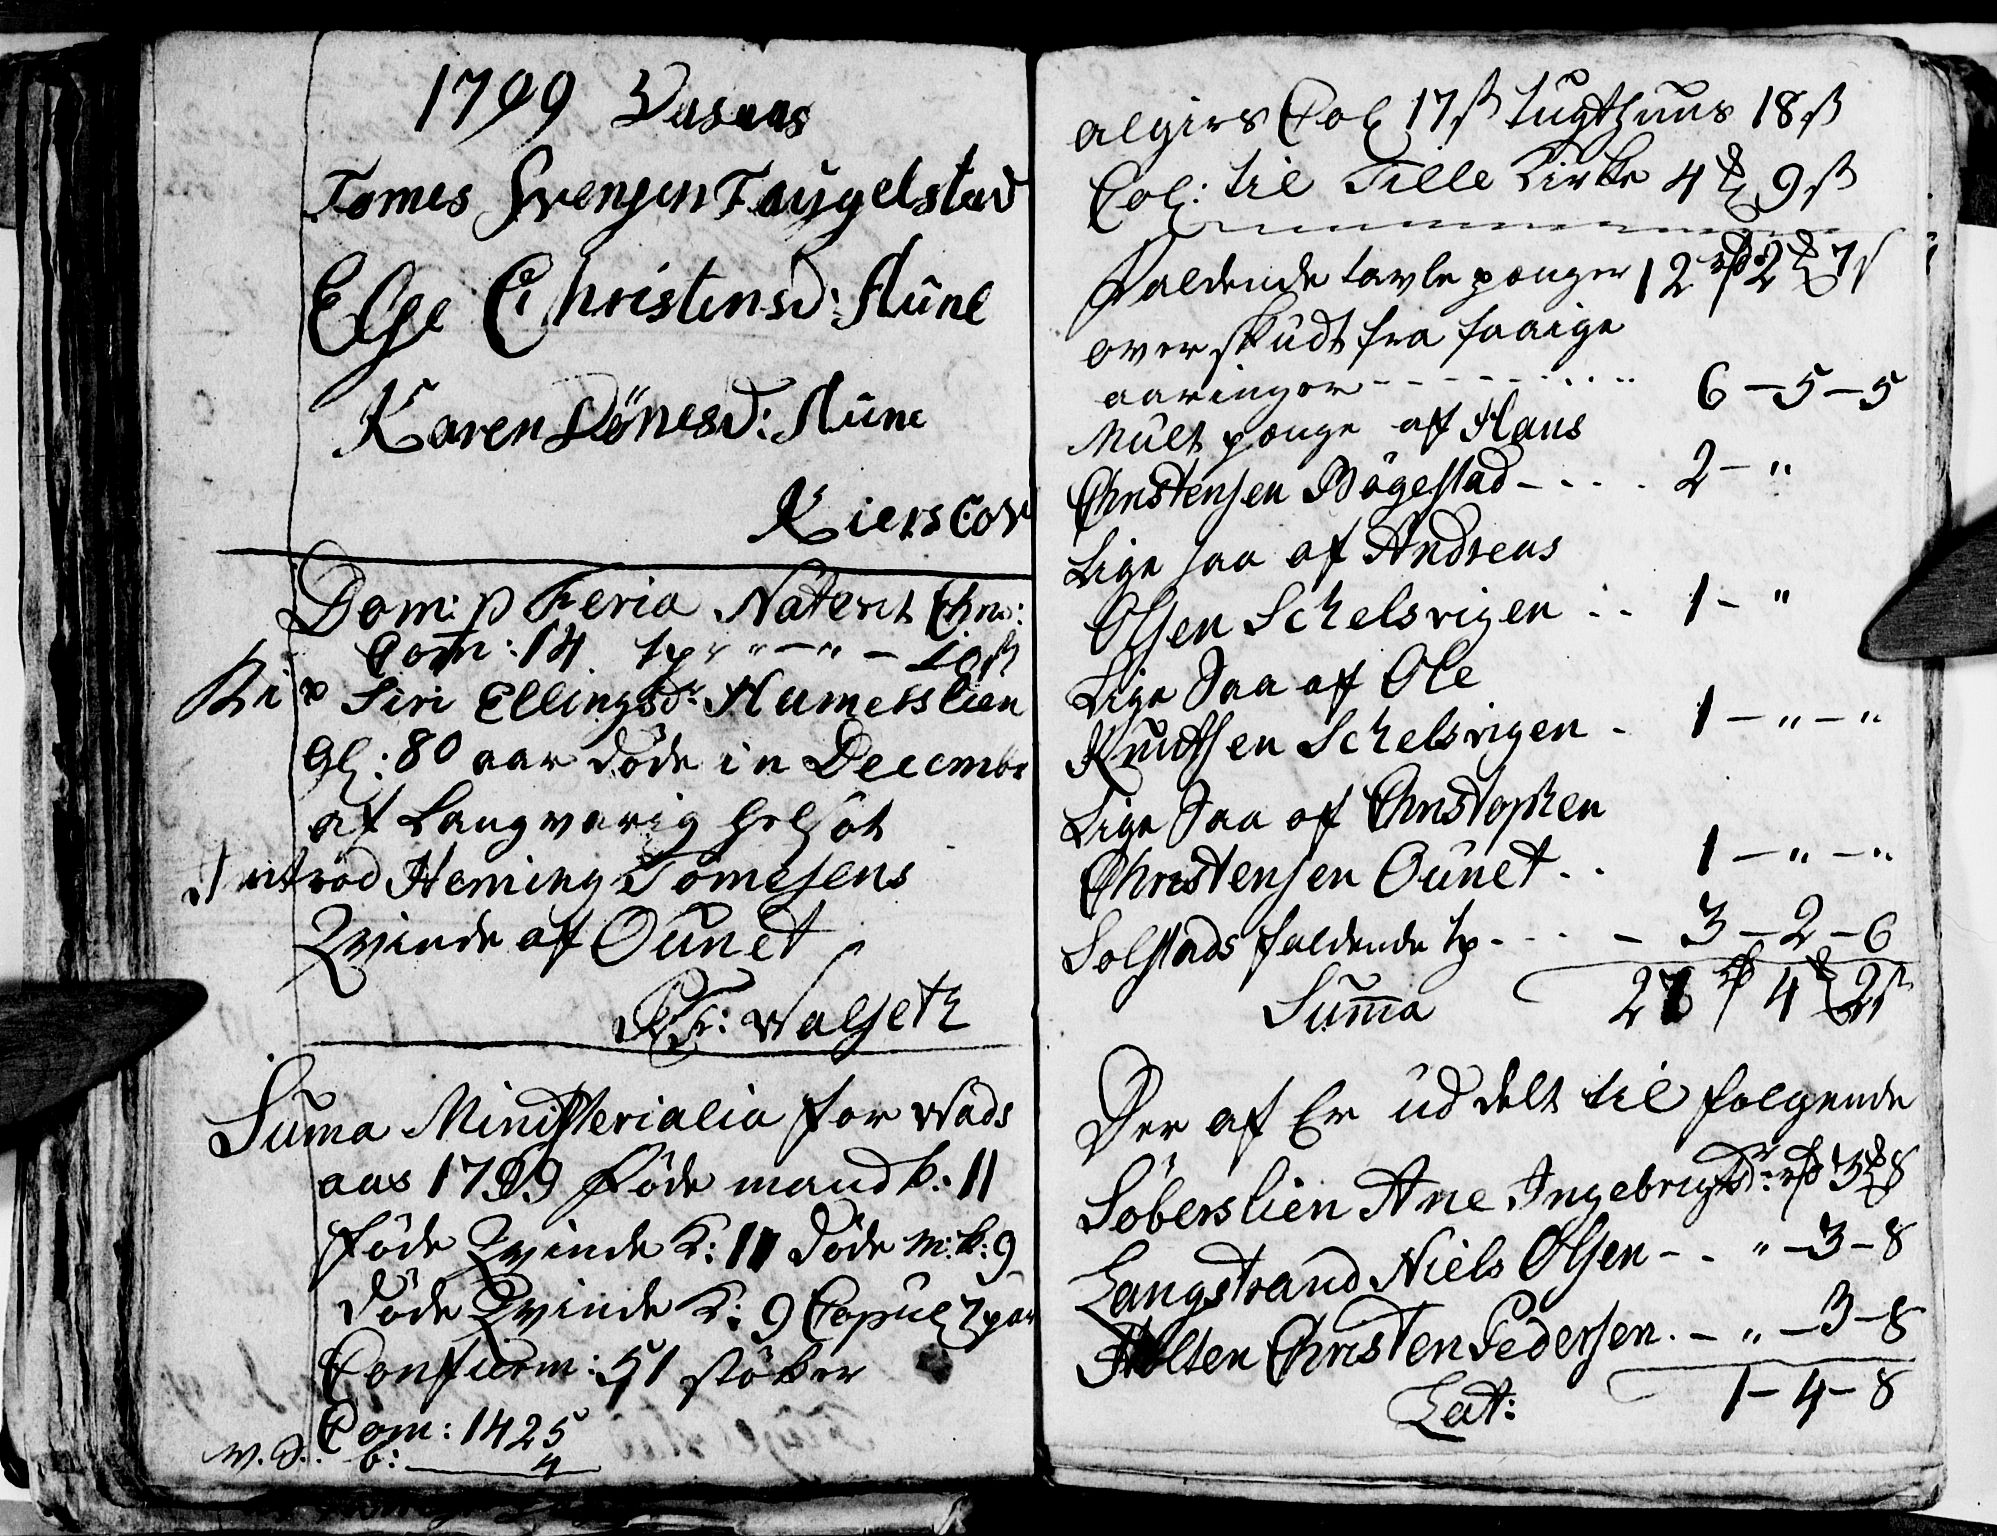 1799 Vasaas
Tomes Svensen Taugelstad
Else Christensd: Aune
Karen Jönesd: Aune
Kierscov
Dom: p Feria Nativit Chri:
Com: 14 tp " – " – 10 ß
Siri Ellingsdr Humetslien
Gl: 80 aar döde in Decembr
af Langvarig helsöt
Introd Heming Tomesens
Qvinde af Ounet
Walseth
Suma Ministerialia for Wads
aas 1799 föde mand k: 11
föde Qvinde K: 11 döde M: k: 9
döde Qvinde K: 9 Copul 7 par
Confirm: 51 støker
Com: 1425
b: 4
algirs Col 17 ß tugthuus 18 ß
Col: til Tille Kirke 4 9 ß
Faldende tavle penger 12 rd 2 7 ß
overskudt fra forrige
aaringer - - - - - 6 – 5 – 5
Mult penge af Hans
Christensen Bögestad - - - 2 – "
Lige saa af Andreas
Olsen Schelsvigen - - 1 – "
Lige Saa af Ole
Knutsen Schelsvigen - 1 – " – "
Lige Saa af Christophen
Christensen Ounet - - 1 – " – "
Solstads faldende tp - - - 3 – 2 – 6
Suma 27 rd 4 2 ß
Der af Er ud delt til følgende
Söberslien Ane Ingebrigtsdr: rd 3 8
Langstrand Niels Olsen - - " – 3 – 8
Holten Christen Pedersen - – " – 3 – 8
Lat: 1 – 4 – 8